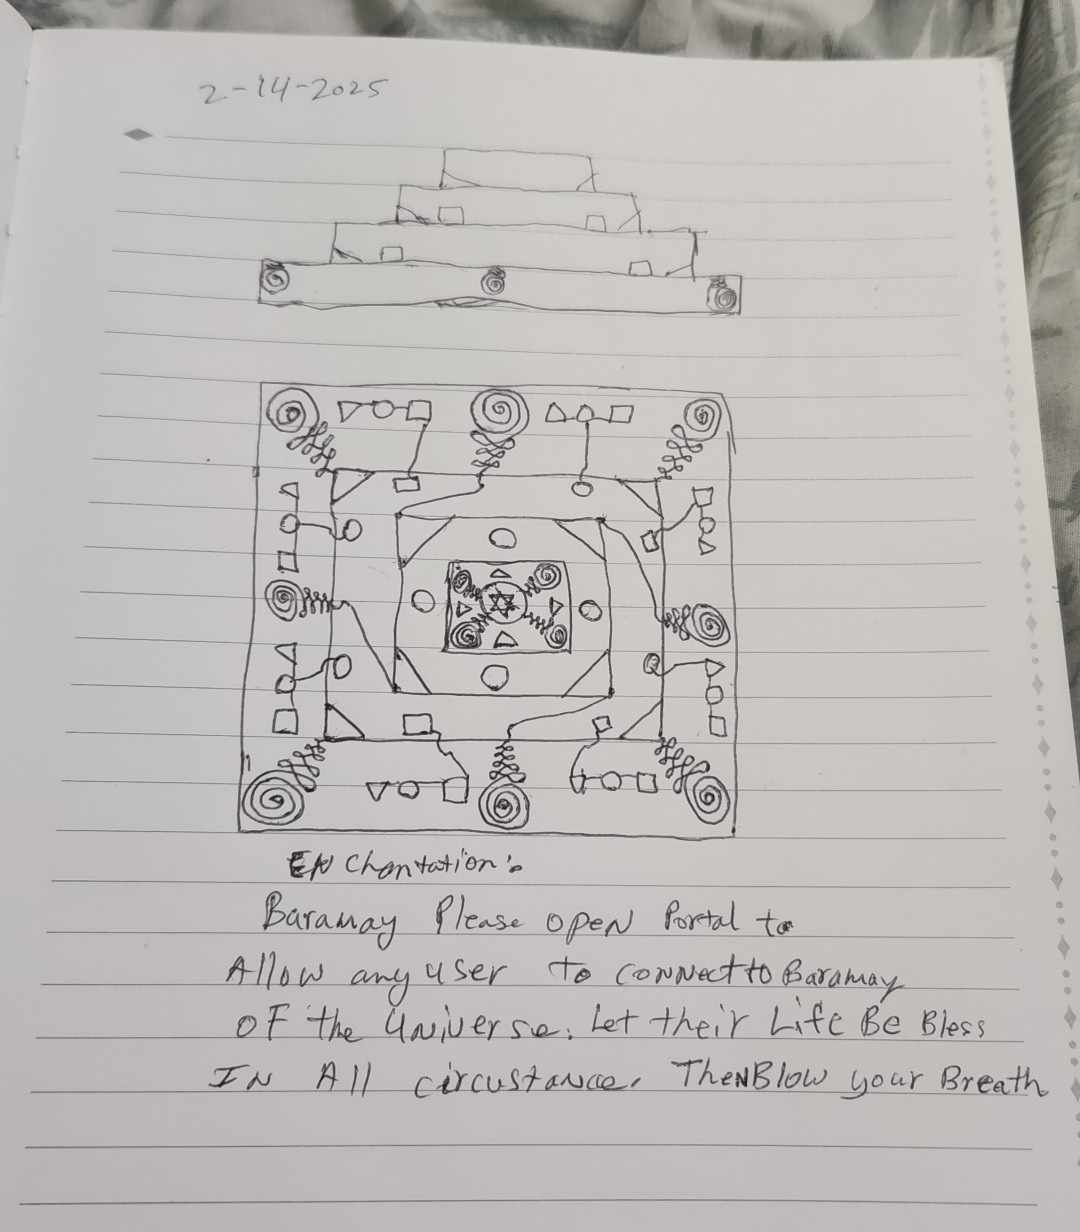 2-14-2025
ENChantation:
Baramay Please open Portal to
Allow any user to connect to Baramay
of the Universe. Let their Life Be Bless
IN All circustance. Then Blow your Breath